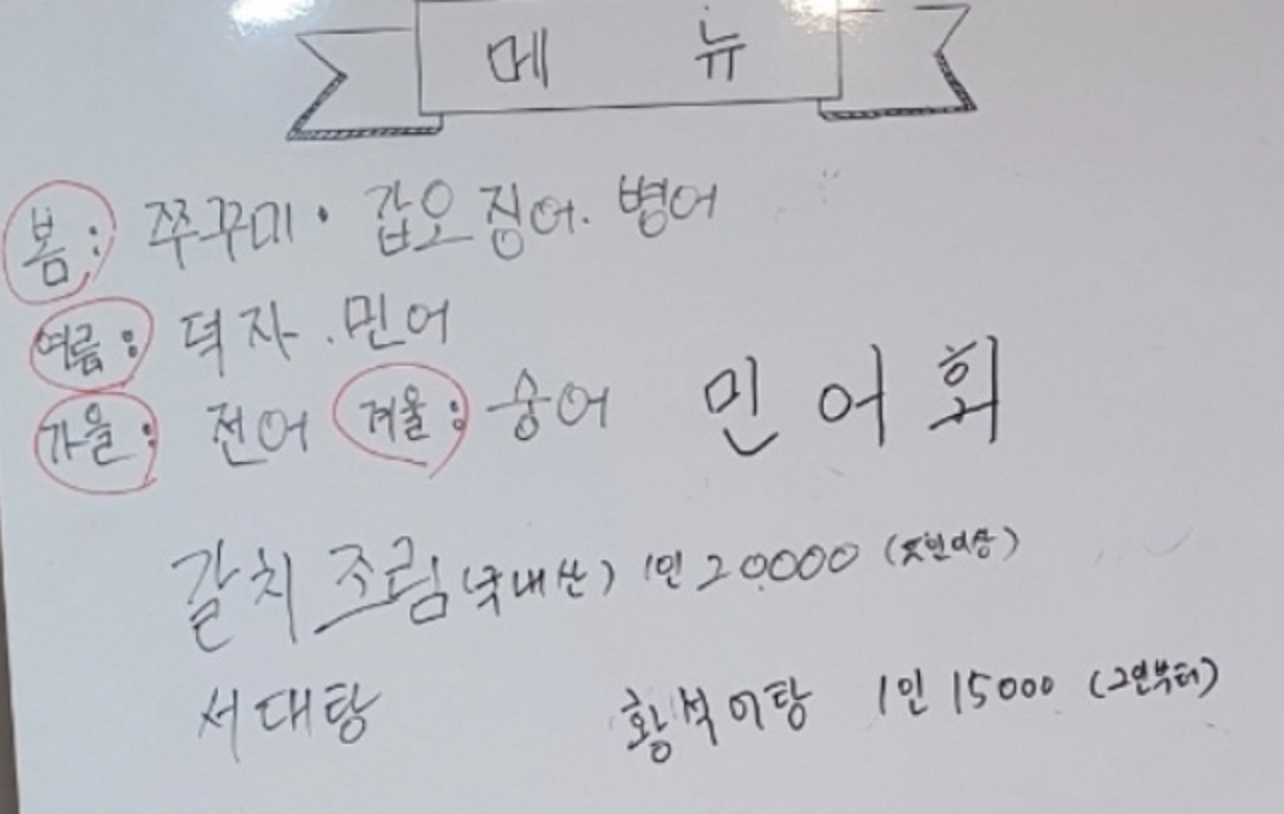 메 뉴
봄: 쭈꾸미 · 갑오징어. 병어
여름: 덕자. 민어
가을: 전어 겨울: 숭어 민어회
갈치조림 (국내산) 1인 20000 (2인이상)
서대탕 황석어탕 1인 15000 (2인부터)